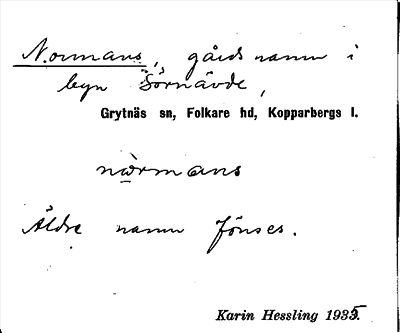 Normans, gårdsnamn i
byn Sörnävde,
Grytnäs sn, Folkare hd, Kopparbergs l.
nòrmans
Äldre namn Jönses.
Karin Hessling 1935.